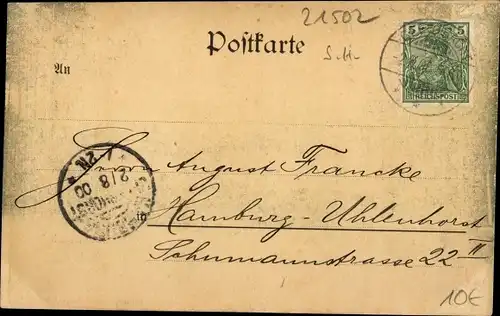 21502
Postkarte
S.H.
An
5 5
REICHSPOST
Herrn August Francke
in
Hamburg-Uhlenhorst
Schumannstrasse 22 II
2 8 00
2N
10€